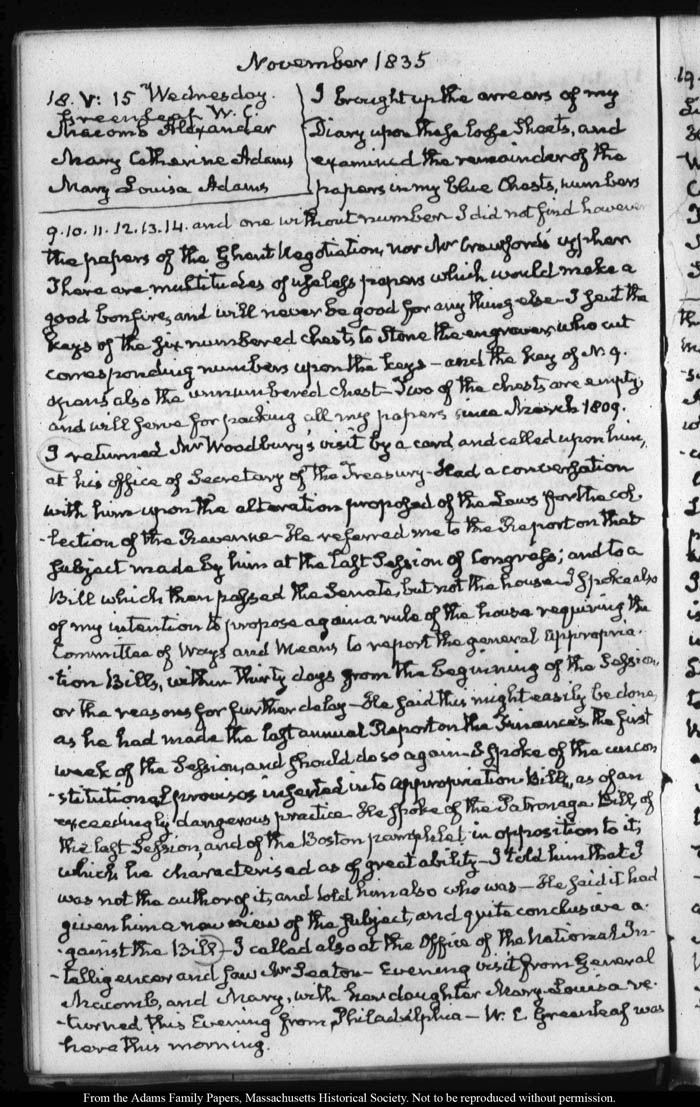 November 1835
18. V: 15 Wednesday.
Greenleaf W. C.
Macomb Alexander
Mary Catherine Adams
Mary Louisa Adams
I brought up the arrears of my
Diary upon these loose sheets, and
examined the remainder of the
papers in my blue Chests, numbers
9. 10. 11. 12. 13. 14. and one without number I did not find however
the papers of the Ghent Negotiation, nor Mr Crawford's cypher
There are multitudes of useless papers which would make a
good bonfire, and will never be good for any thing else - I sent the
keys of the six numbered chests to Stone the engraver, who cut
corresponding numbers upon the keys - and the key of N. 9.
opens also the unnumbered chest - Two of the chests are empty,
and will serve for packing all my papers since March 1809.
I returned Mr Woodbury's visit by a card, and called upon him,
at his office of Secretary of the Treasury - Had a conversation
with him upon the alteration proposed of the Laws for the col-
-lection of the Revenue - He referred me to the Report on that
subject made by him at the last Session of Congress; and to a
Bill which then passed the Senate, but not the house - I spoke also
of my intention to propose again a rule of the house requiring the
Committee of Ways and Means to report the general appropria-
-tion Bills, within thirty days from the beginning of the Session,
or the reasons for further delay - He said this might easily be done,
as he had made the last annual Report on the Finances the first
week of the Session, and should do so again - I spoke of the uncon
-stitutional provisos inserted into appropriation Bills, as of an
exceedingly dangerous practice He spoke of the Patronage Bill, of
the last Session, and of the Boston pamphlet in opposition to it,
which he characterised as of great ability - I told him that I
was not the author of it, and told him also who was - He said it had
given him a new view of the subject, and quite conclusive a-
-gainst the Bill - I called also at the Office of the National In-
-telligencer and saw Mr Seaton - Evening visit from General
Macomb, and Mary, with her daughter Mary-Louisa re-
-turned this Evening from Philadelphia - W. C. Greenleaf was
here this morning.
19.
From the Adams Family Papers, Massachusetts Historical Society. Not to be reproduced without permission.